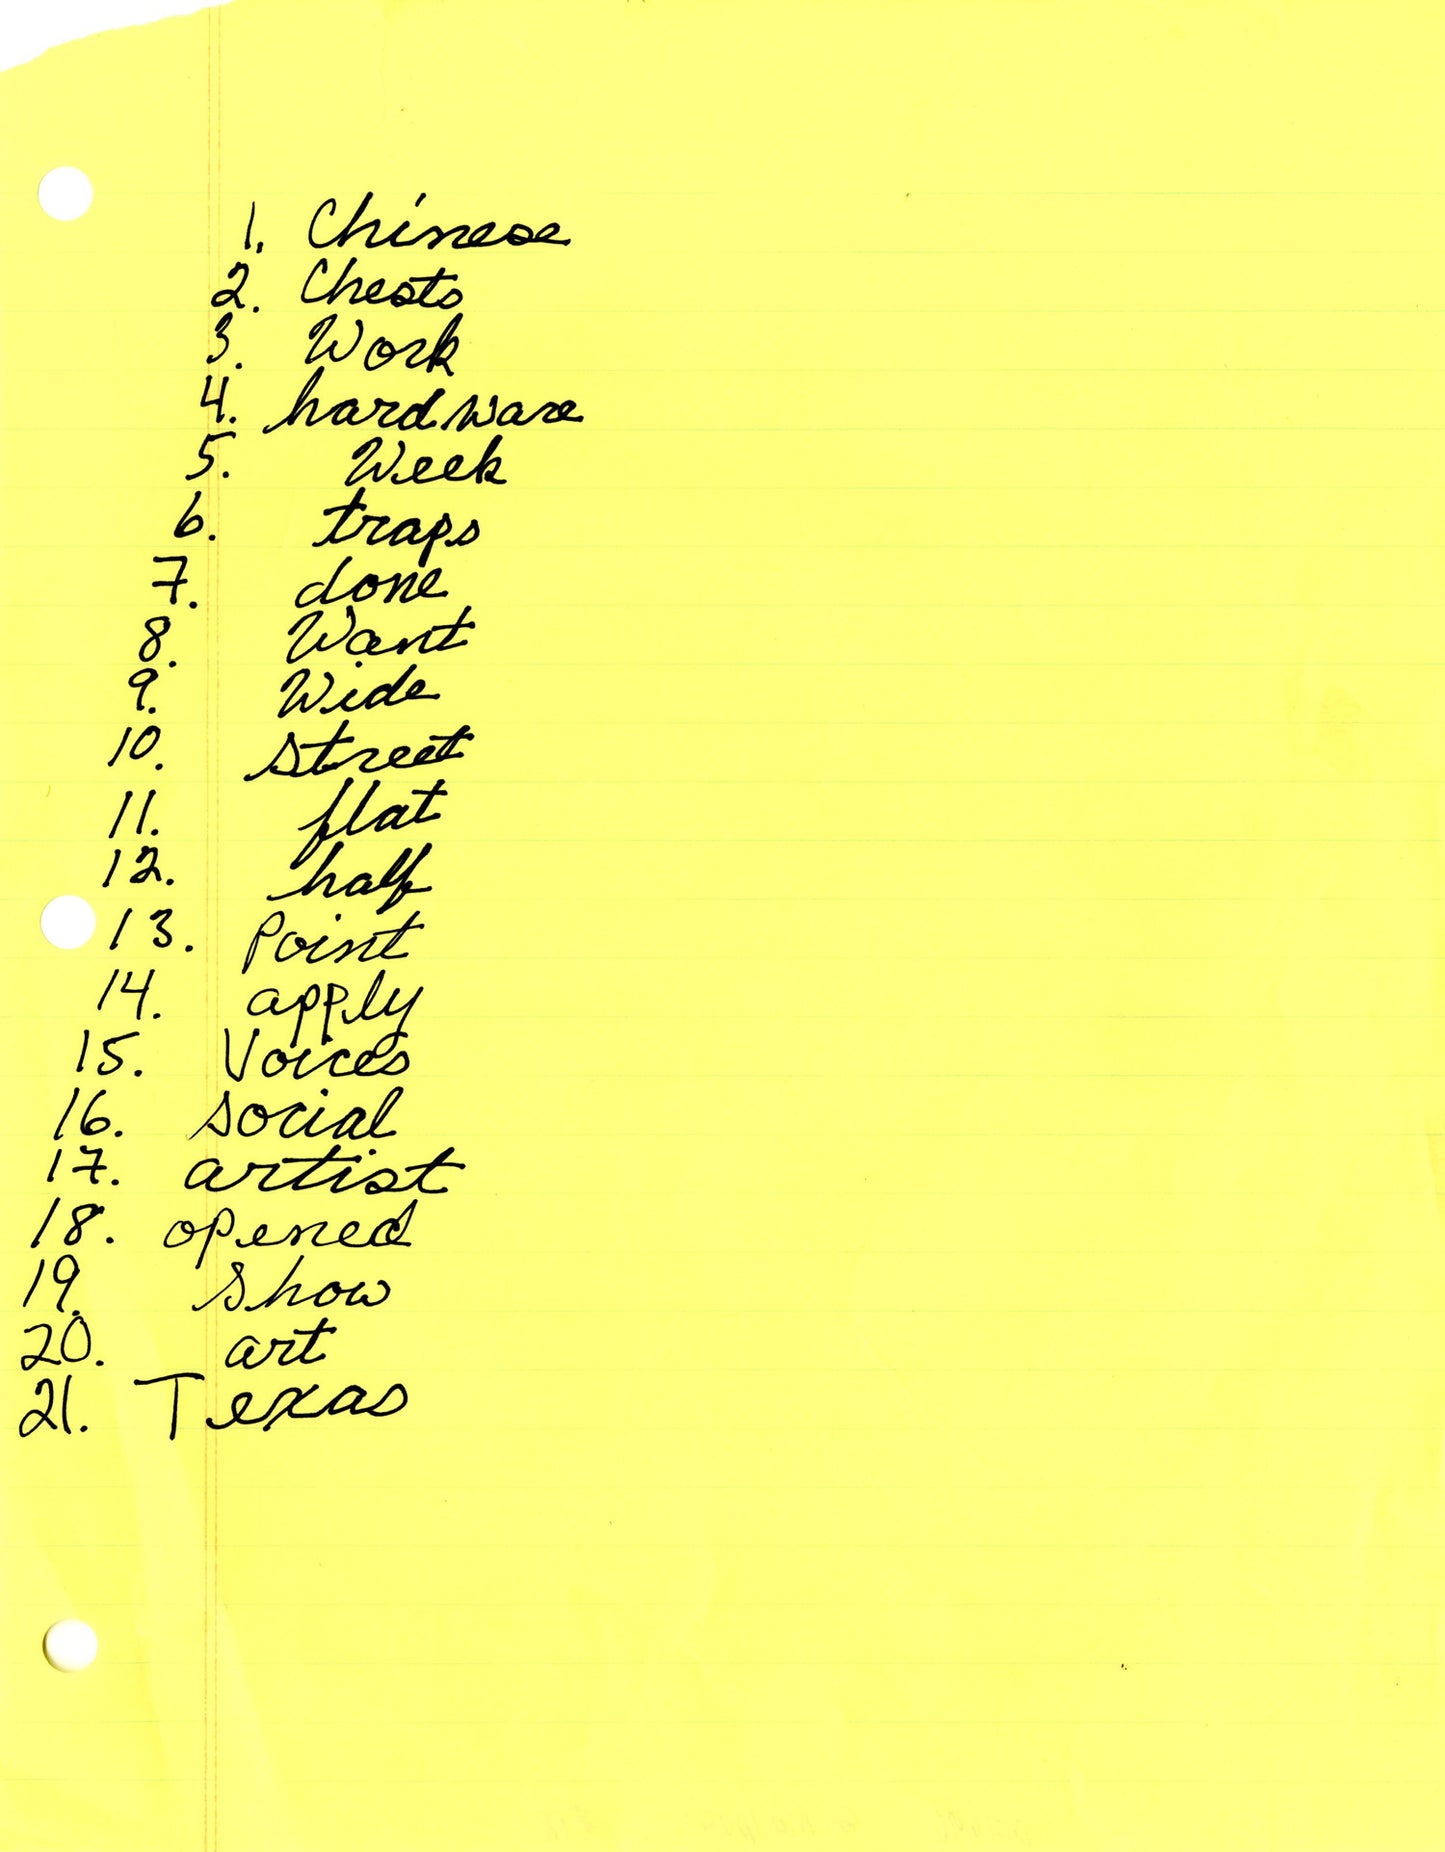 1. Chinese
2. Chests
3. Work
4. hardware
5. Week
6. traps
7. done
8. Want
9. Wide
10. street
11. flat
12. half
13. Point
14. apply
15. Voices
16. social
17. artist
18. opened
19. Show
20. art
21. Texas